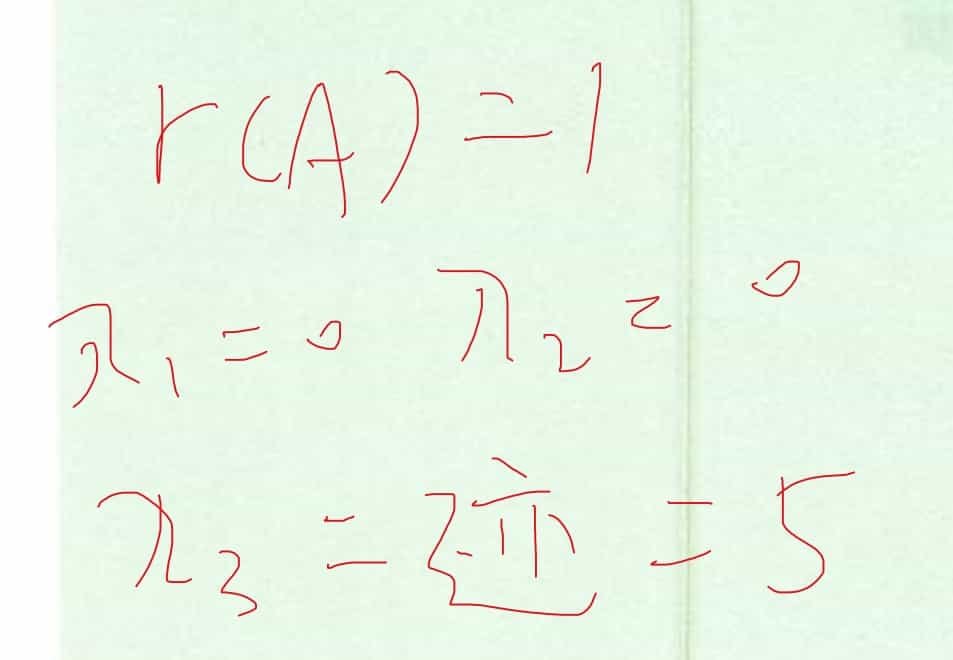 r(A)=1
λ₁=0 λ₂=0
λ₃=迹=5